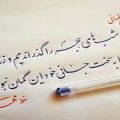 شبهای هجر را گذراندیم و ز
سخت جانی خود این گمان نبو
خط